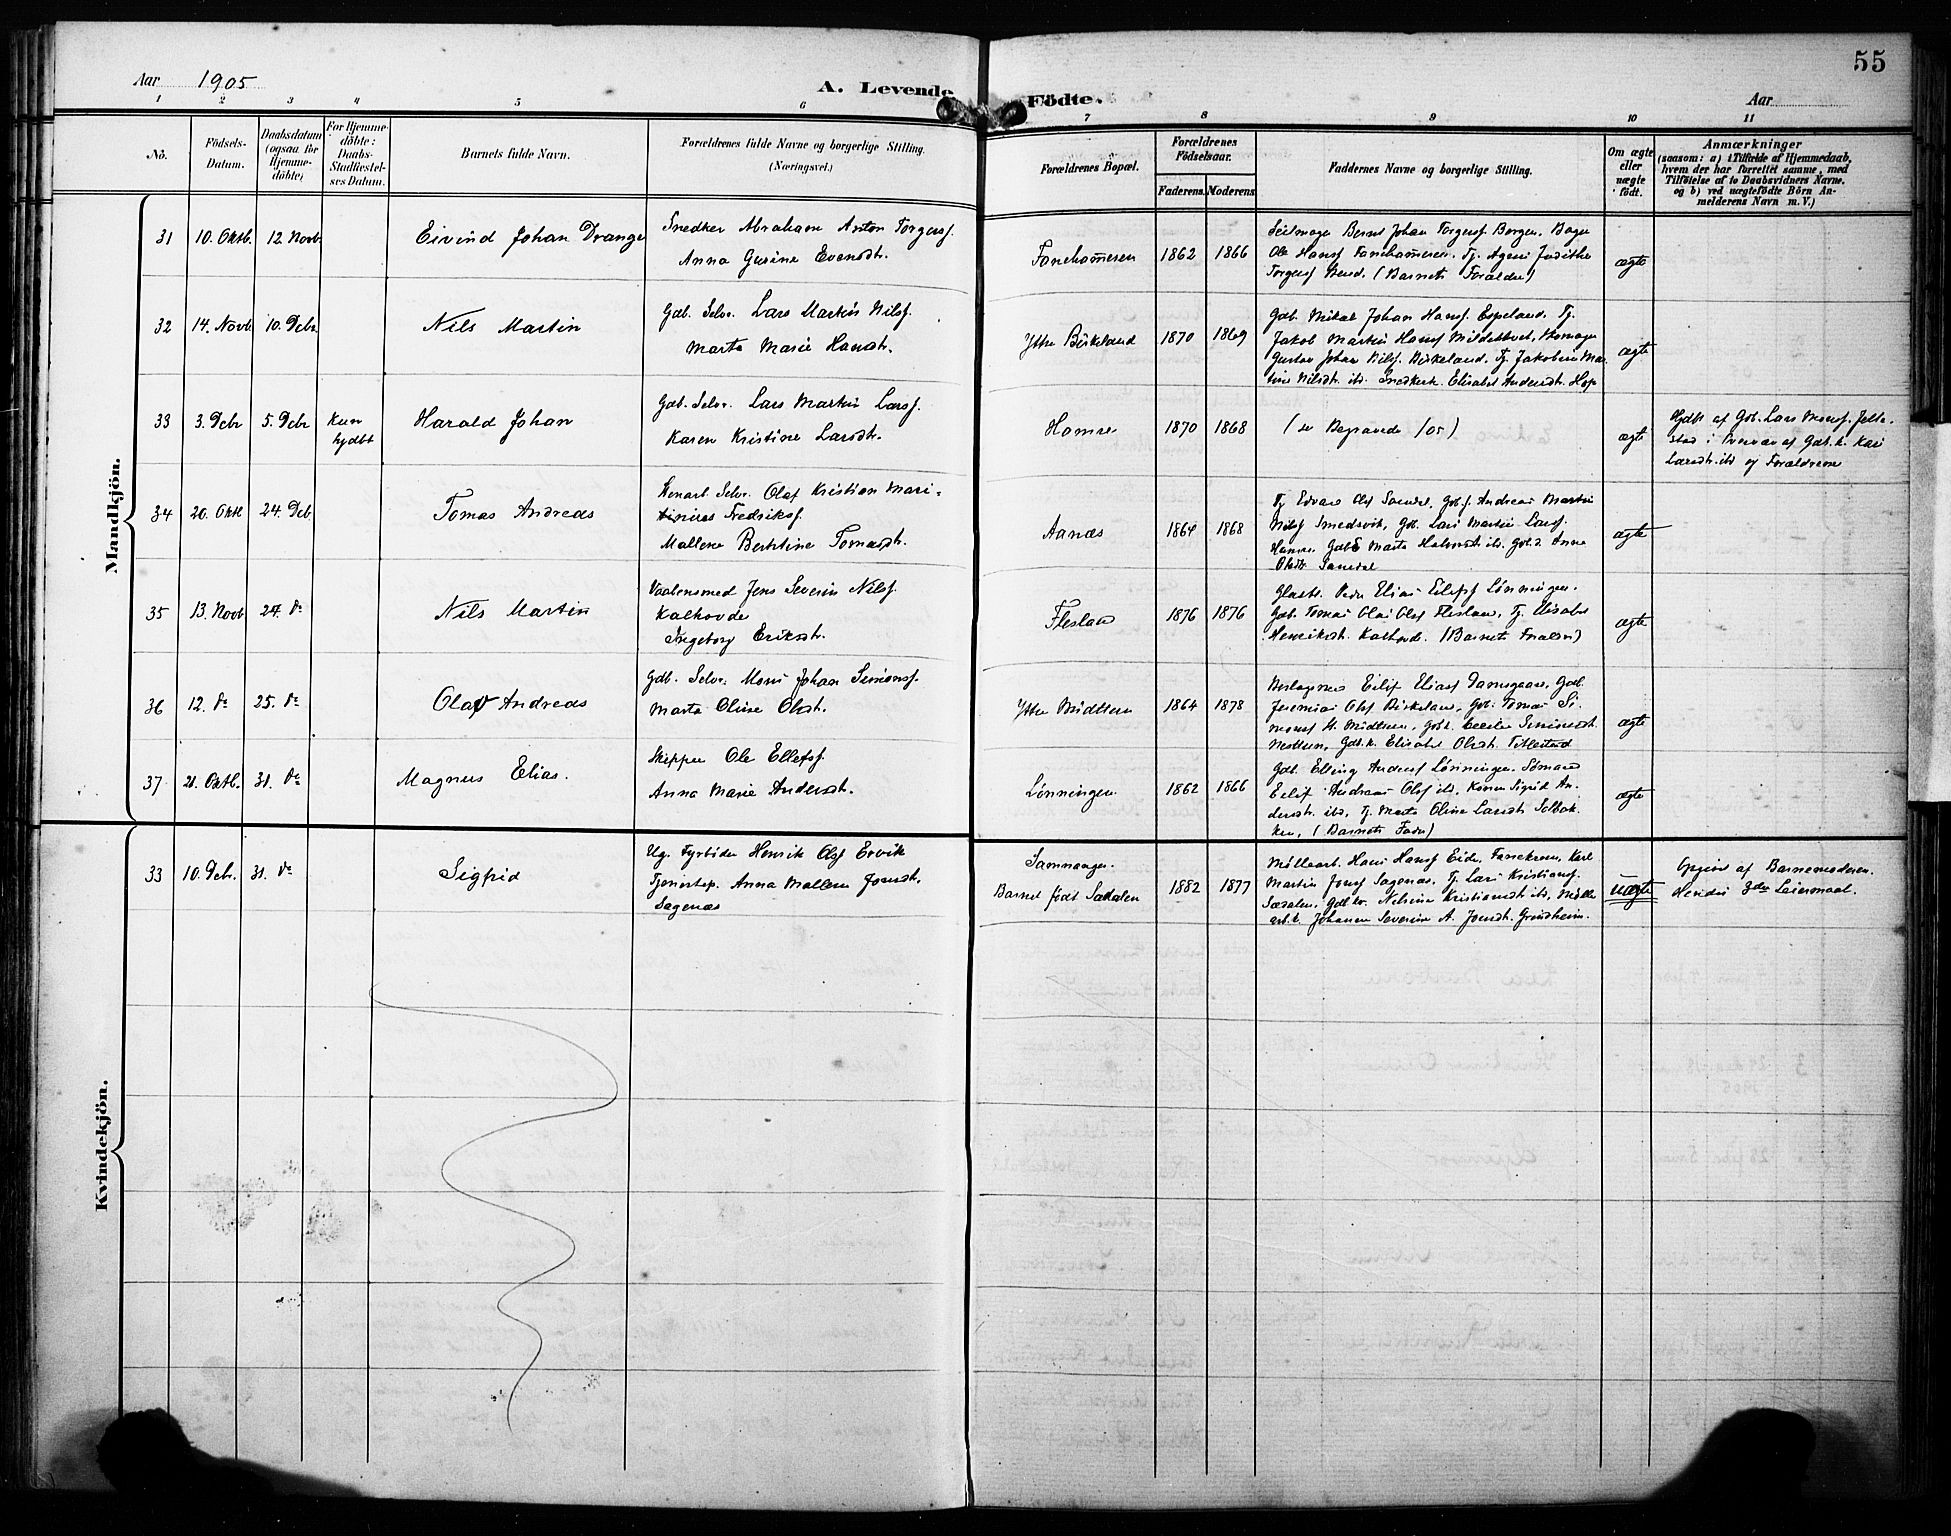 55
Aar 1905
A. Levende Födte.
Aar
1 2 3 4 5 6 7 8 9 10 11
No.
Födsels-
Datum.
Daabsdatum
(ogsaa for
Hjemme-
döbte)
For Hjemme-
döbte:
Daabs-
Stadfæstel-
ses Datum.
Barnets fulde Navn.
Forældrenes fulde Navne og borgerlige Stilling.
(Næringsvei.)
Forældrenes Bopæl.
Forældrenes
Födselsaar.
Faderens. Moderens.
Faddernes Navne og borgerlige Stilling.
Om ægte
eller
uægte
födt.
Anmærkninger
(saasom: a) i Tilfælde af Hjemmedaab,
hvem der har forrettet samme, med
Tilföielse af to Daabsvidners Navne,
og b) ved uægtefödte Börn An-
melderens Navn m. V.)
Mandkjön.
31 10. Oktb. 12 Novb. Eivind Johan Drange
Snedker Abraham Anton Torgersf.
Anna Gurine Evensdt.
Fanehameren 1862 1866
Seilmager Bernt Johan Torgersf Borgen, Bager
Ole Hansf Fanehameren. Tj. Agnes Judithe
Torgersf Stend. (Barnets Forældre)
ægte
32 14. Novb. 10. Debr. Nils Martin
Gdb. Selv. Lars Martin Nilsf.
Marta Marie Hansdt.
Ytre Birkeland 1870 1869
Gdb. Mikal Johan Hansf. Espeland. Tj.
Jakob Martin Hansf Middeltvet, Skomager
Gustav Johan Nilsf. Birkeland, Tj. Jakobine Mar-
tine Nilsdt. ibd. Snedkerk. Elisabet Andersdt. Hop
ægte
33 3. Debr 5. Debr Kun
hjdbt
Harald Johan
Gdb. Selv. Lars Martin Larsf.
Karen Kristine Larsdt.
Hamre 1870 1868
(se Begravede /05)
ægte
Hjdbt af Gdb. Lars Monsf. Jelle-
stad i Overvær af Gdb.k. Kari
Larsdt. ibd og Forældrene
34 20. Oktb 24. Deb. Tomas Andreas
Stenarb. Selv. Olaf Kristian Mari-
tinius Fredriksf.
Mallene Bertine Tomasdt.
Aanæs 1864 1868
Tj Edvard Olsf Samdal, Gbs. Andreas Martin
Nilsf Smedsvik, Gdb. Lars Martin Larsf.
Hamre Gdb Marta Halvorsdt ibd. Gbd. Anna
Olsdt Samdal
ægte
35 13. Novb 24. do Nils Martin
Vaabensmed Jens Severin Nilsf
Kalhovde
Ingeborg Eriksdt.
Flesland 1876 1876
Peder Elias Eilifsf Lønningen.
Gdb. Tomas Olai Olsf Flesland, Tj. Elisabet
Henriksdt. Kalhovd. (Barnets Forældre)
ægte
36 12. do 25. do Olav Andreas
Gdb. Selv. Mons Johan Simonsf.
Marta Oline Olsdt.
Ytre Midttun 1864 1878
Eilif Eliasf Damsgaard, Gdb.
Jeremias Olsf Birkeland, Gdb. Tomas Si-
monsf St. Midttun, Gdbd. Cecilie Simonsdt.
Midttun, Gdb.k. Elisabet Olsdt. Titlestad
ægte
37 21. Oktb. 31. do Magnus Elias.
Skipper Ole Ellefsf.
Anna Marie Andersdt.
Lønningen 1862 1866
Gdb. Elling Andersf Lønningen. Sømand
Eilif Andreas Olsf ibd. Konen Sigrid An-
dersdt. ibd, Tj. Marta Oline Larsdt Solbak-
ken, (Barnets Fader)
ægte
Kvindekjön.
33 10. Debr. 31. do Sigfrid
Ug. Fyrbøder Henrik Olsf Ervik
Tjenestep. Anna Mallene Jonsdt.
Sagenæs
Samnanger.
Barnet født Sædalen 1882 1877
Møllearb. Hans Hansf Eide, Fanekroen, Karl
Martin Jonsf Sagenæs, Tj. Lars Kristiansf.
Sædalen, Gdbk. Nilsine Kristiansdt ibd, Mølle-
arb.k. Johanne Severine A. Jonsdt. Grindheim.
uægte
Opgivet af Barnemoderen.
Hendes 3die Leiermaal.